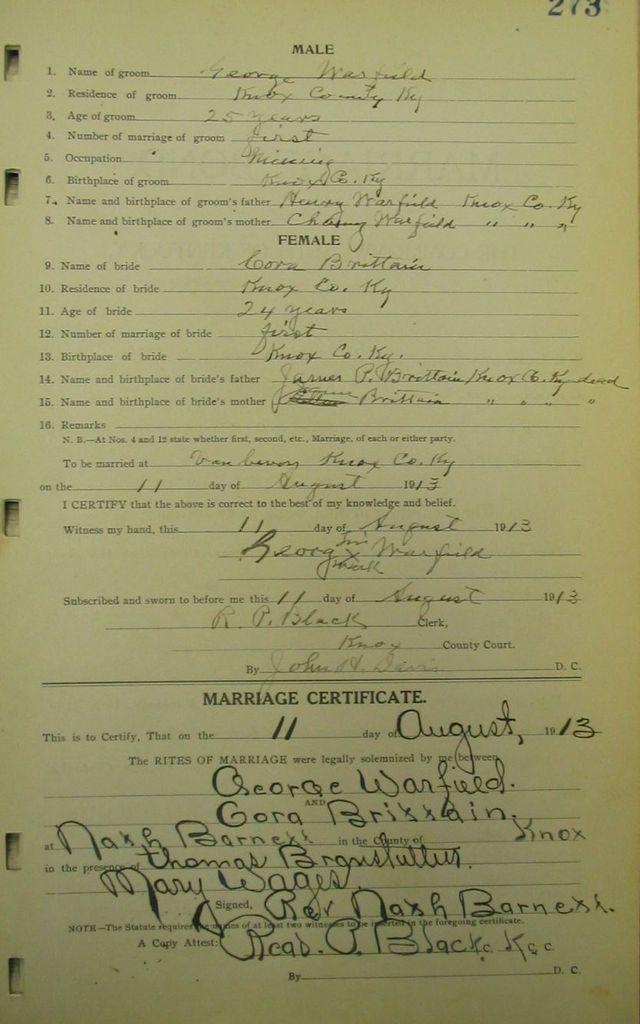 273
MALE
1. Name of groom George Warfield
2. Residence of groom Knox County Ky
3. Age of groom 25 years
4. Number of marriage of groom first
5. Occupation Mining
6. Birthplace of groom Knox Co. Ky
7. Name and birthplace of groom's father Henry Warfield Knox Co. Ky
8. Name and birthplace of groom's mother Warfield " " "
FEMALE
9. Name of bride Cora Brittain
10. Residence of bride Knox Co. Ky
11. Age of bride 24 years
12. Number of marriage of bride first
13. Birthplace of bride Knox Co. Ky.
14. Name and birthplace of bride's father James P. Brittain Knox Co. Ky dead
15. Name and birthplace of bride's mother Brittain " " " "
16. Remarks
N. B.—At Nos. 4 and 12 state whether first, second, etc., Marriage, of each or either party.
To be married at Knox Co. Ky
on the 11 day of August 1913
I CERTIFY that the above is correct to the best of my knowledge and belief.
Witness my hand, this 11 day of August 1913
George his x mark Warfield
Subscribed and sworn to before me this 11 day of August 1913
R. P. Black Clerk,
Knox County Court.
By John H. Davis D. C.
MARRIAGE CERTIFICATE.
This is to Certify, That on the 11 day of August, 1913
The RITES OF MARRIAGE were legally solemnized by me between
George Warfield.
AND
Cora Brittain.
at Nash Barnett in the County of Knox
in the presence of Thomas
Mary Wages.
Signed, Rev Nash Barnett.
NOTE—The Statute requires the names of at least two witnesses to be inserted in the foregoing certificate.
A Copy Attest: Read. P. Black
By D. C.